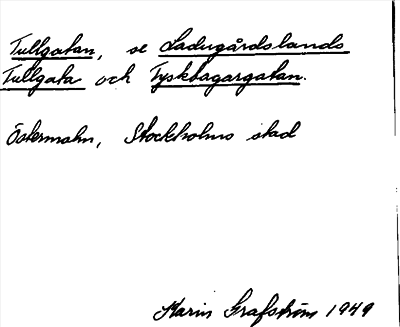 Tullgatan, se Ladugårdslands
Tullgata och Tyskbagargatan.
Östermalm, Stockholms stad
Karin Grafström 1949